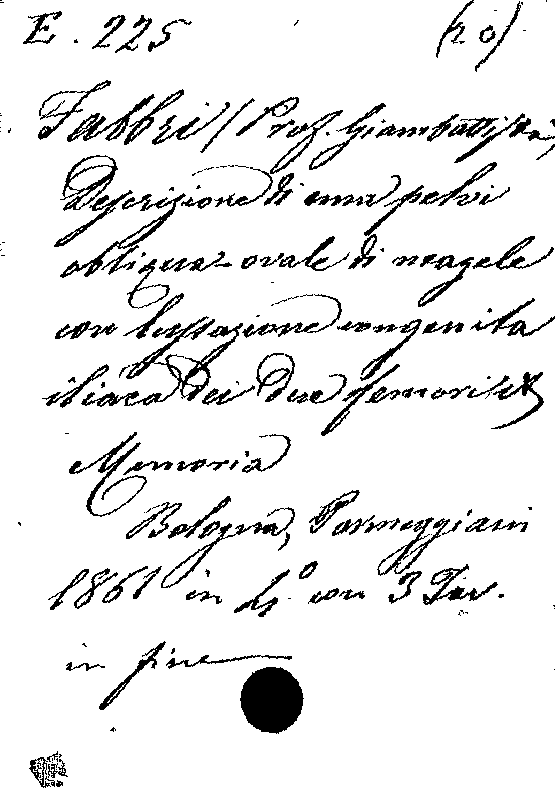 E. 225 (20)
Fabbri (Prof. Giambattista)
Descrizione di una pelvi
obliqua-ovale di Naegele
con lussazione congenita
iliaca dei due femori
Memoria
Bologna, Parmeggiani
1861 in 4.° con 3 Tav.
in fine